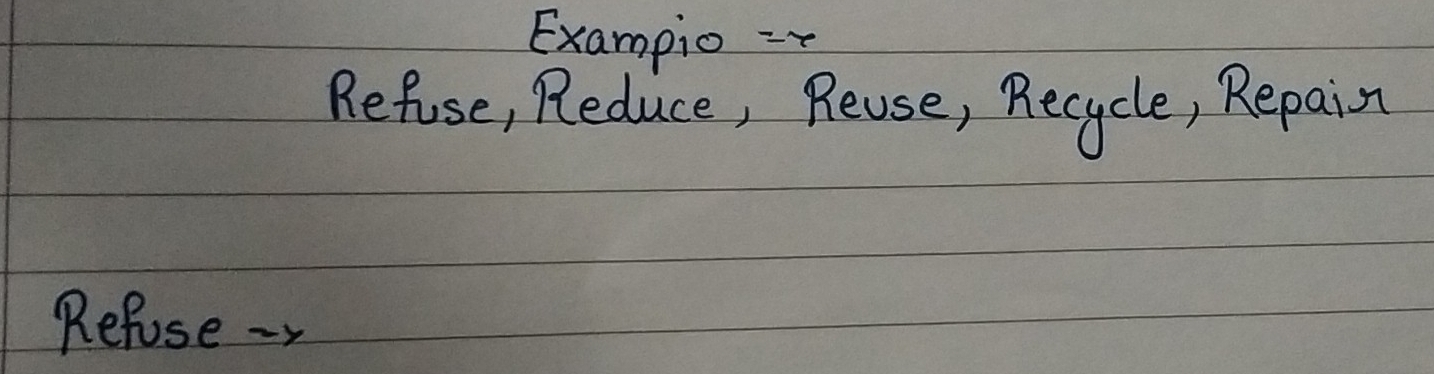 Exampio →
Refuse, Reduce, Reuse, Recycle, Repair
Refuse →